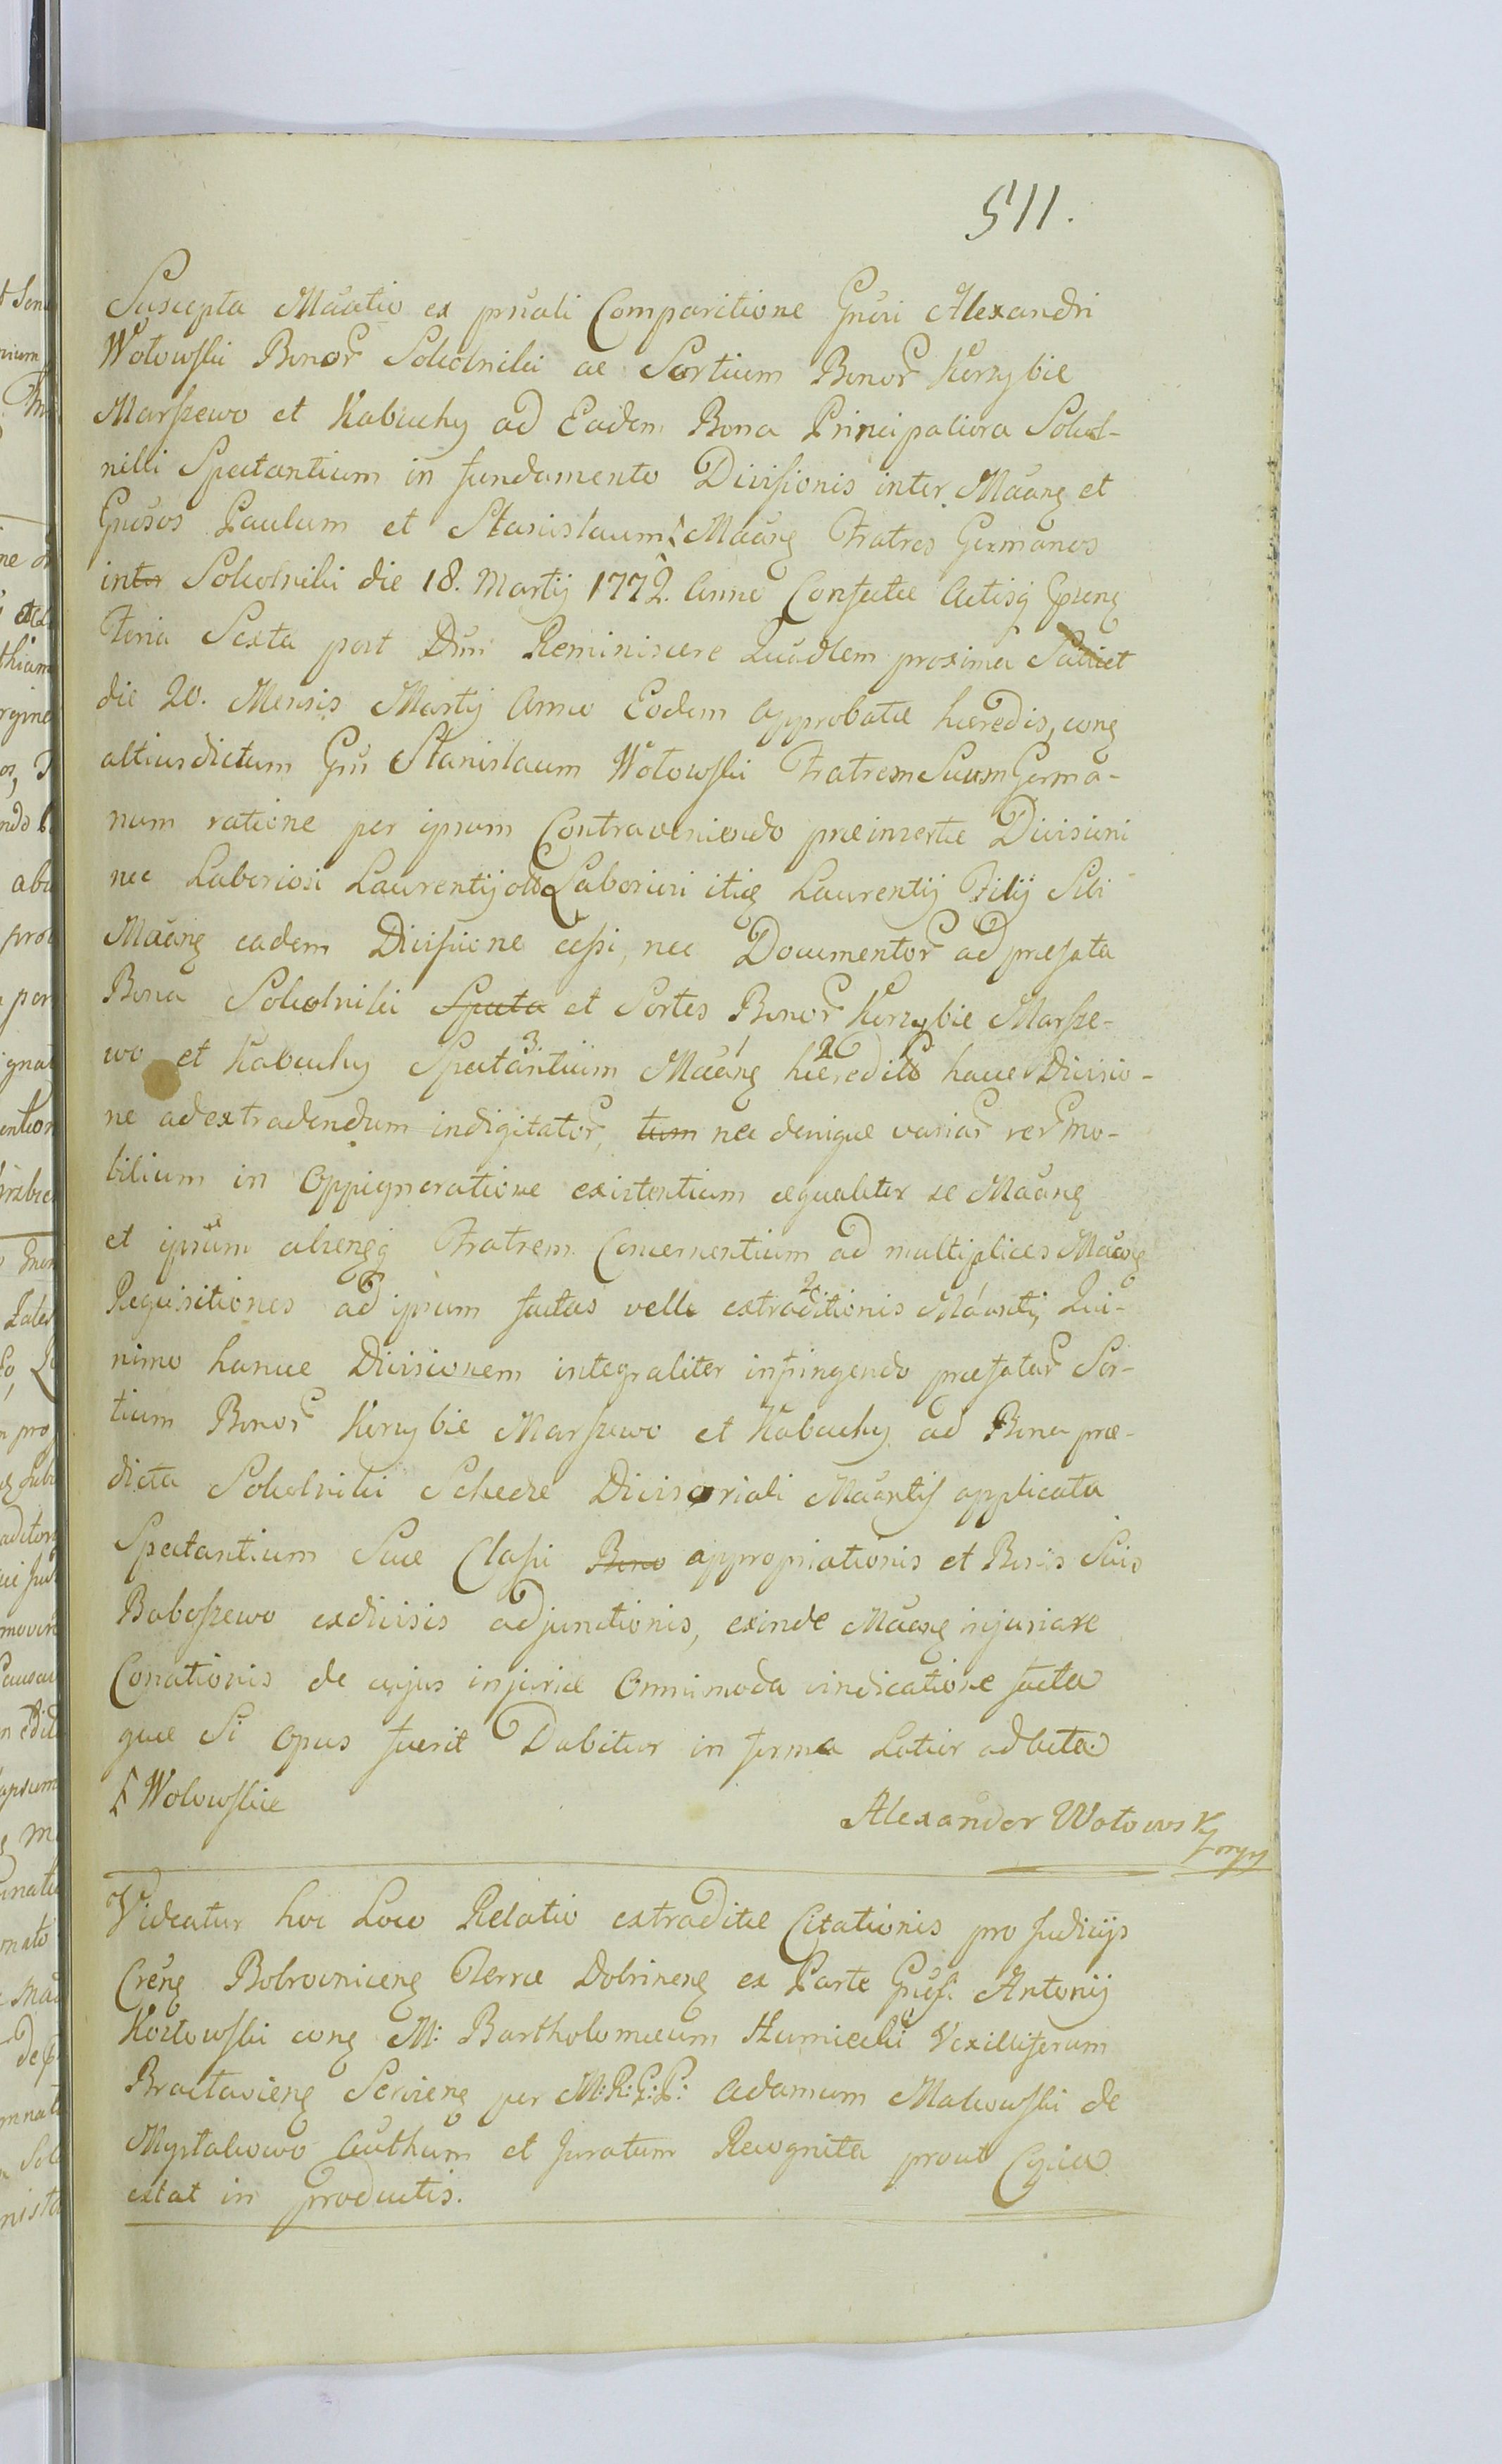 511.
Suscepta Mãatio ex prñali Comparitione Gñosi Alexandri
Wołowski Bonor Sokolniki ac Sortium Bonor Kerzybie
Marszewo et Kabuchy ad Eadem Bona Principaliora Sokol-
niki Spectantium in fundamento Divisionis inter Mãang et
Gñosos Paulum et Stanislaum Mãang Fratres Germanos
inter Sokolniki die 18. Martij 1772. Anno Confectæ Actisq
Feria Sexta post Dñm Reminiscere Quadlem proxima
die 20. Mensis Martij Anno Eodem approbatæ hæredis, cong
altiusdictum Gñ Stanislaum Wołowski Fratrem Suum Germa-
num ratione per ipsum Contraveniendo præinsertæ Divisioni
nec Laboriosi Laurentij Laboriosi itiq Laurentij Filij Sibi
Mãang eadem Divisione cessi, nec Documentor ad præfata
Bona Sokolniki Specta et Sortes Bonor Kerzybie Marsze-
wo et Kabuchy Spectantium 3. Mãang 1 2 hacce Divisio-
ne ad extradendum indigitator, tum nec denique variar rer mo-
bilium in Oppigneratione existentium æqualiter se Mãang
et ipsum Fratrem Concernentium ad multiplices Mãang
Requisitiones ad ipsum factas velle extraditionis Mãanti, Qui-
nimo hancce Divisionem integraliter infringendo præfatar Sor-
tium Bonor Kerzybie Marszewo et Kabuchy ad Bona præ-
dicta Sokolniki Schedæ Divisoriali Mãantis applicata
Spectantium Suæ Classi Bono appropriationis et Bonis Suis
Baboszewo exdivisis adjunctionis, exinde Mãang injuriare
Conationis de cujus injuriæ Omnimoda vindicatione facta
quæ Si Opus fuerit Dabitur in forma Latior ad Acta
Wolowskie
Alexander Wołowsky
Videatur hoc Loco Relatio extraditæ Citationis pro Judicijs
Creng Bobrowniceng Terræ Dobrineng ex Parte Gñosi Antonij
Kozłowski cong M: Bartholomæum Humiecki Vexilliferum
Bractavieng Servieng per M:R:G:P: Adamum Makowski de
Mystakowo Authum et Juratum Recognita prout Copia
extat in productis.